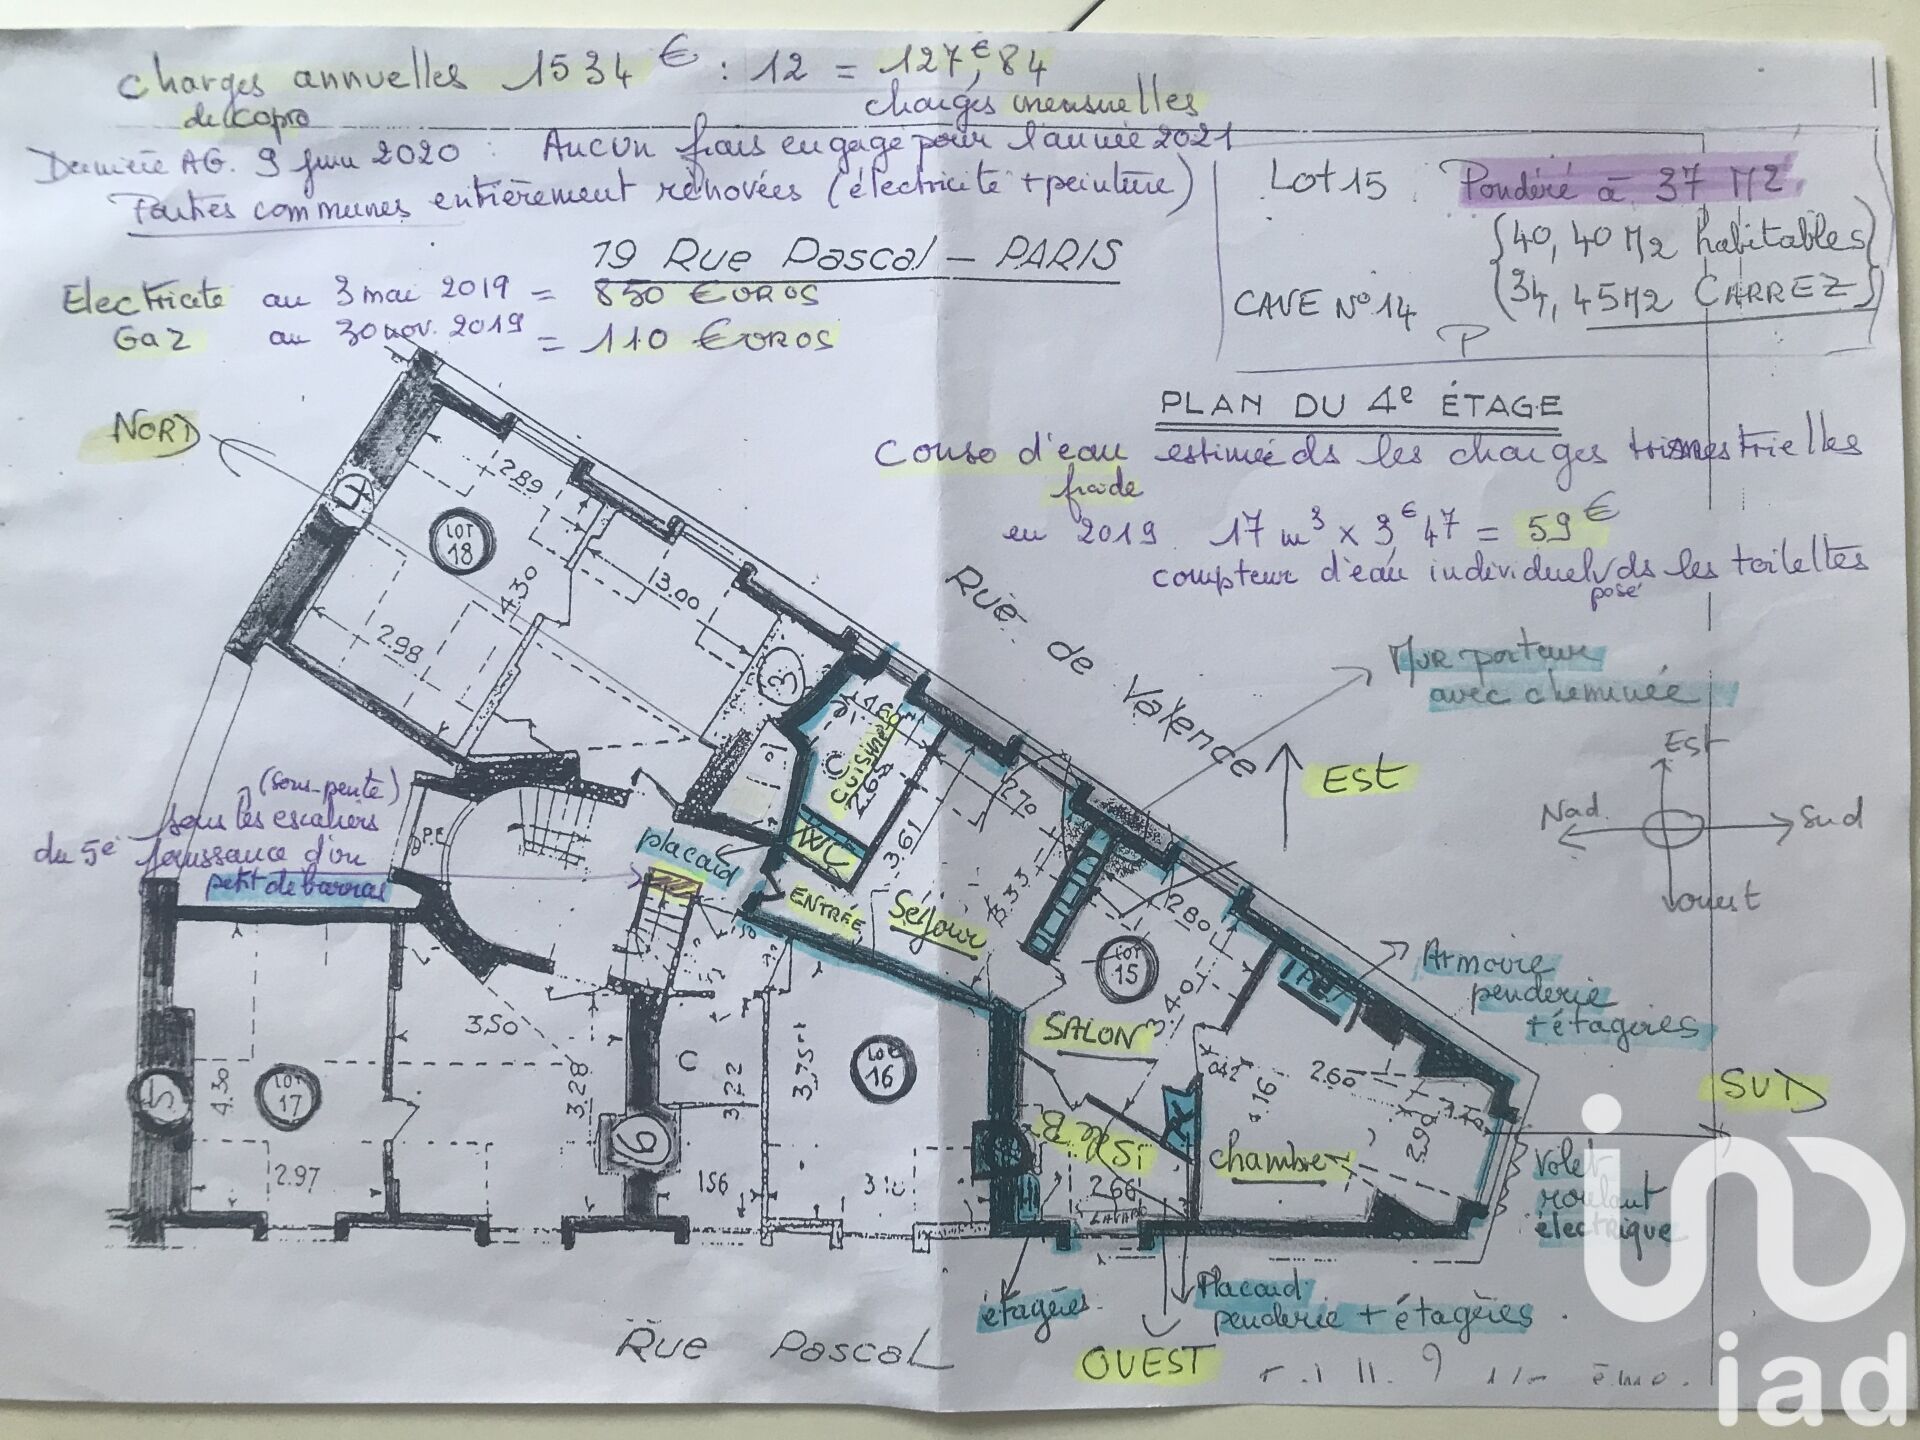 Charges annuelles 1534 € : 12 = 127,€84
de Copro
charges mensuelles
Dernière AG. 9 juin 2020 : Aucun frais engagé pour l'année 2021
Parties communes entièrement rénovées (électricité + peinture)
LOT 15 Pondéré à 37 M2
{40,40 M2 habitables}
{34,45 M2 CARREZ}
CAVE N° 14
P
19 Rue Pascal - PARIS
Electricité au 3 mai 2019 = 850 €UROS
Gaz au 30 nov. 2019 = 110 €UROS
PLAN DU 4e ÉTAGE
Conso d'eau estimée ds les charges trimestrielles
froide
en 2019 17 m³ x 3€47 = 59€
compteur d'eau individuel ds les toilettes
posé
NORD
Rue de Valence
Mur porteur
avec cheminée
EST
Est
Nord
Sud
ouest
LOT 18
4
2.89
4.30
3.00
2.98
3
1.60
Cuisine
C
2.65
WC
placard
ENTRÉE
Séjour
3.61
2.70
3.33
2.80
LOT 15
3.40
SALON
(sous-pente)
sous les escaliers
du 5e jouissance d'un
petit débarras
P.E
Armoire
penderie
+ étagères
SUD
LOT 17
5
4.30
2.97
3.50
3.28
6
C
3.22
156
3.75
LOT 16
3.10
S. de B
2.66
LAVABO
0.42
4.16
2.60
2.90
chambre
Volet
roulant
électrique
étagères
Placard
penderie + étagères
OUEST
Rue Pascal
iad